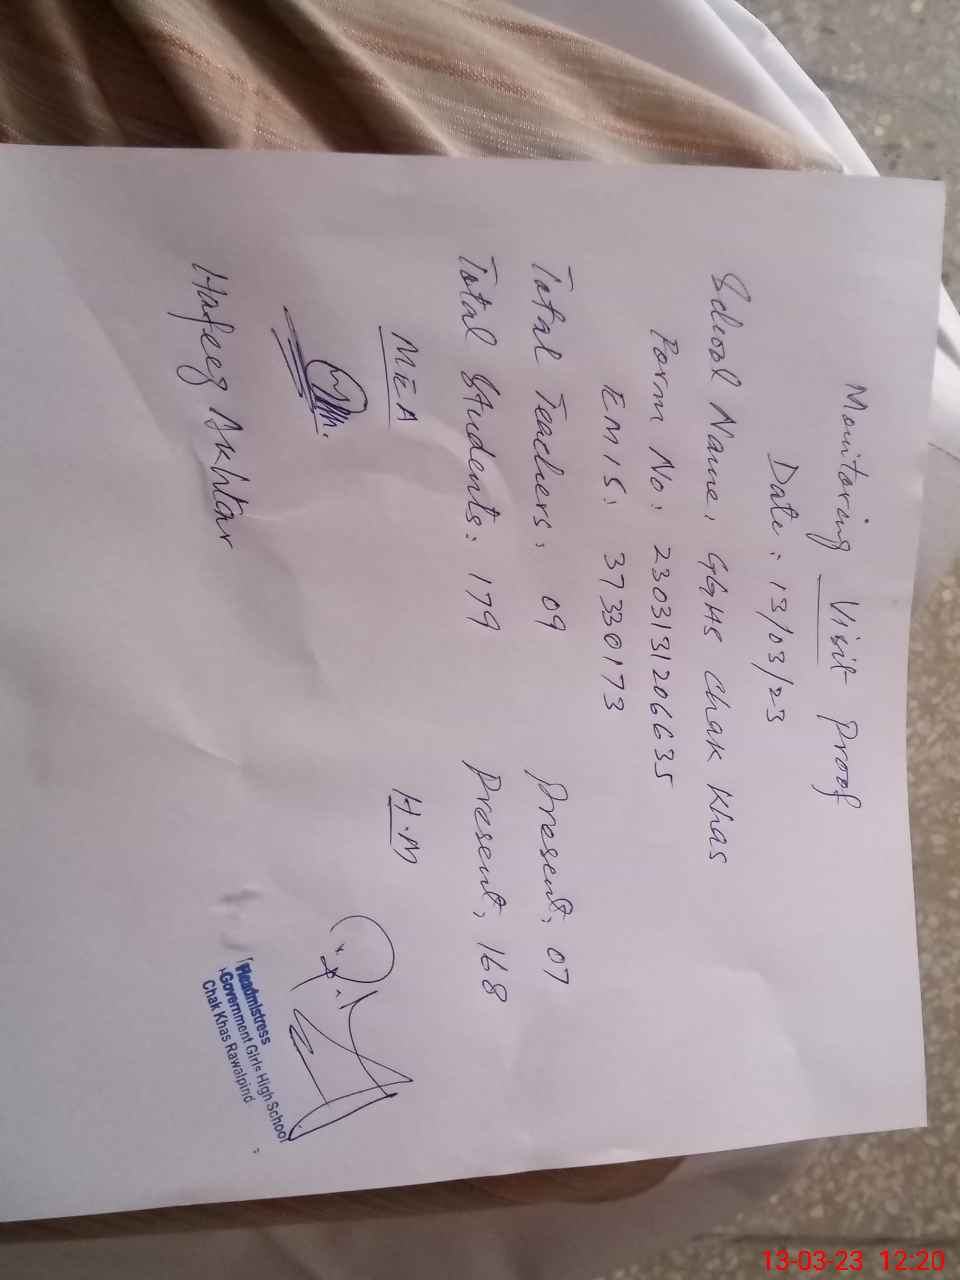 Monitoring Visit Proof
Date: 13/03/23
School Name: GGHS Chak Khas
Form No: 2303131206635
EMIS: 37330173
Total Teachers: 09 Present: 07
Total Students: 179 Present: 168
MEA H.M
Hafeez Akhtar
Headmistress
Government Girls High School
Chak Khas Rawalpind
13-03-23 12:20